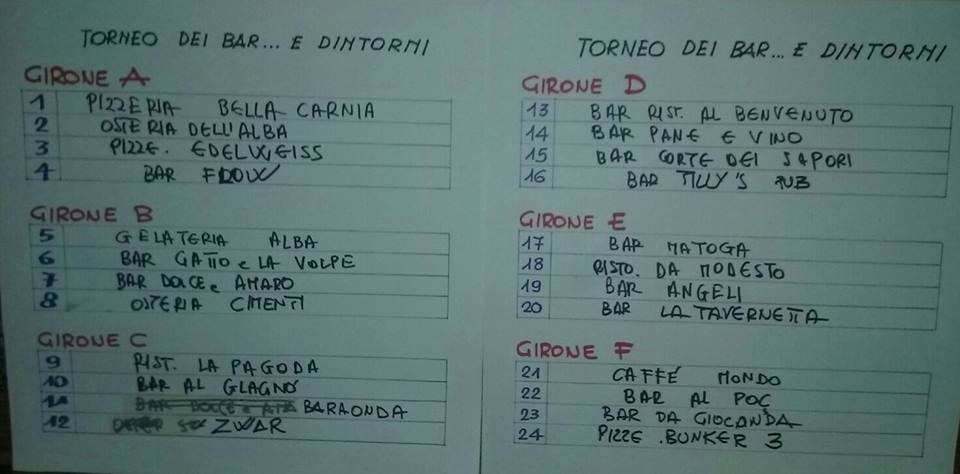 TORNEO DEI BAR... E DINTORNI
GIRONE A
1 PIZZERIA BELLA CARNIA
2 OSTERIA DELL'ALBA
3 PIZZE. EDELWEISS
4 BAR
GIRONE B
5 GELATERIA ALBA
6 BAR GATTO e LA VOLPE
7 BAR DOLCE e AMARO
8 OSTERIA CIMENTI
GIRONE C
9 RIST. LA PAGODA
10 BAR AL GLAGNÓ
11 BAR DOLCE e BARAONDA
12 ZWAR
TORNEO DEI BAR... E DINTORNI
GIRONE D
13 BAR RIST. AL BENVENUTO
14 BAR PANE E VINO
15 BAR CORTE DEI SAPORI
16 BAR TILLY'S PUB
GIRONE E
17 BAR MATOGA
18 RISTO. DA MODESTO
19 BAR ANGELI
20 BAR LA TAVERNETTA
GIRONE F
21 CAFFÉ MONDO
22 BAR AL POÇ
23 BAR DA GIOCANDA
24 PIZZE .BUNKER 3